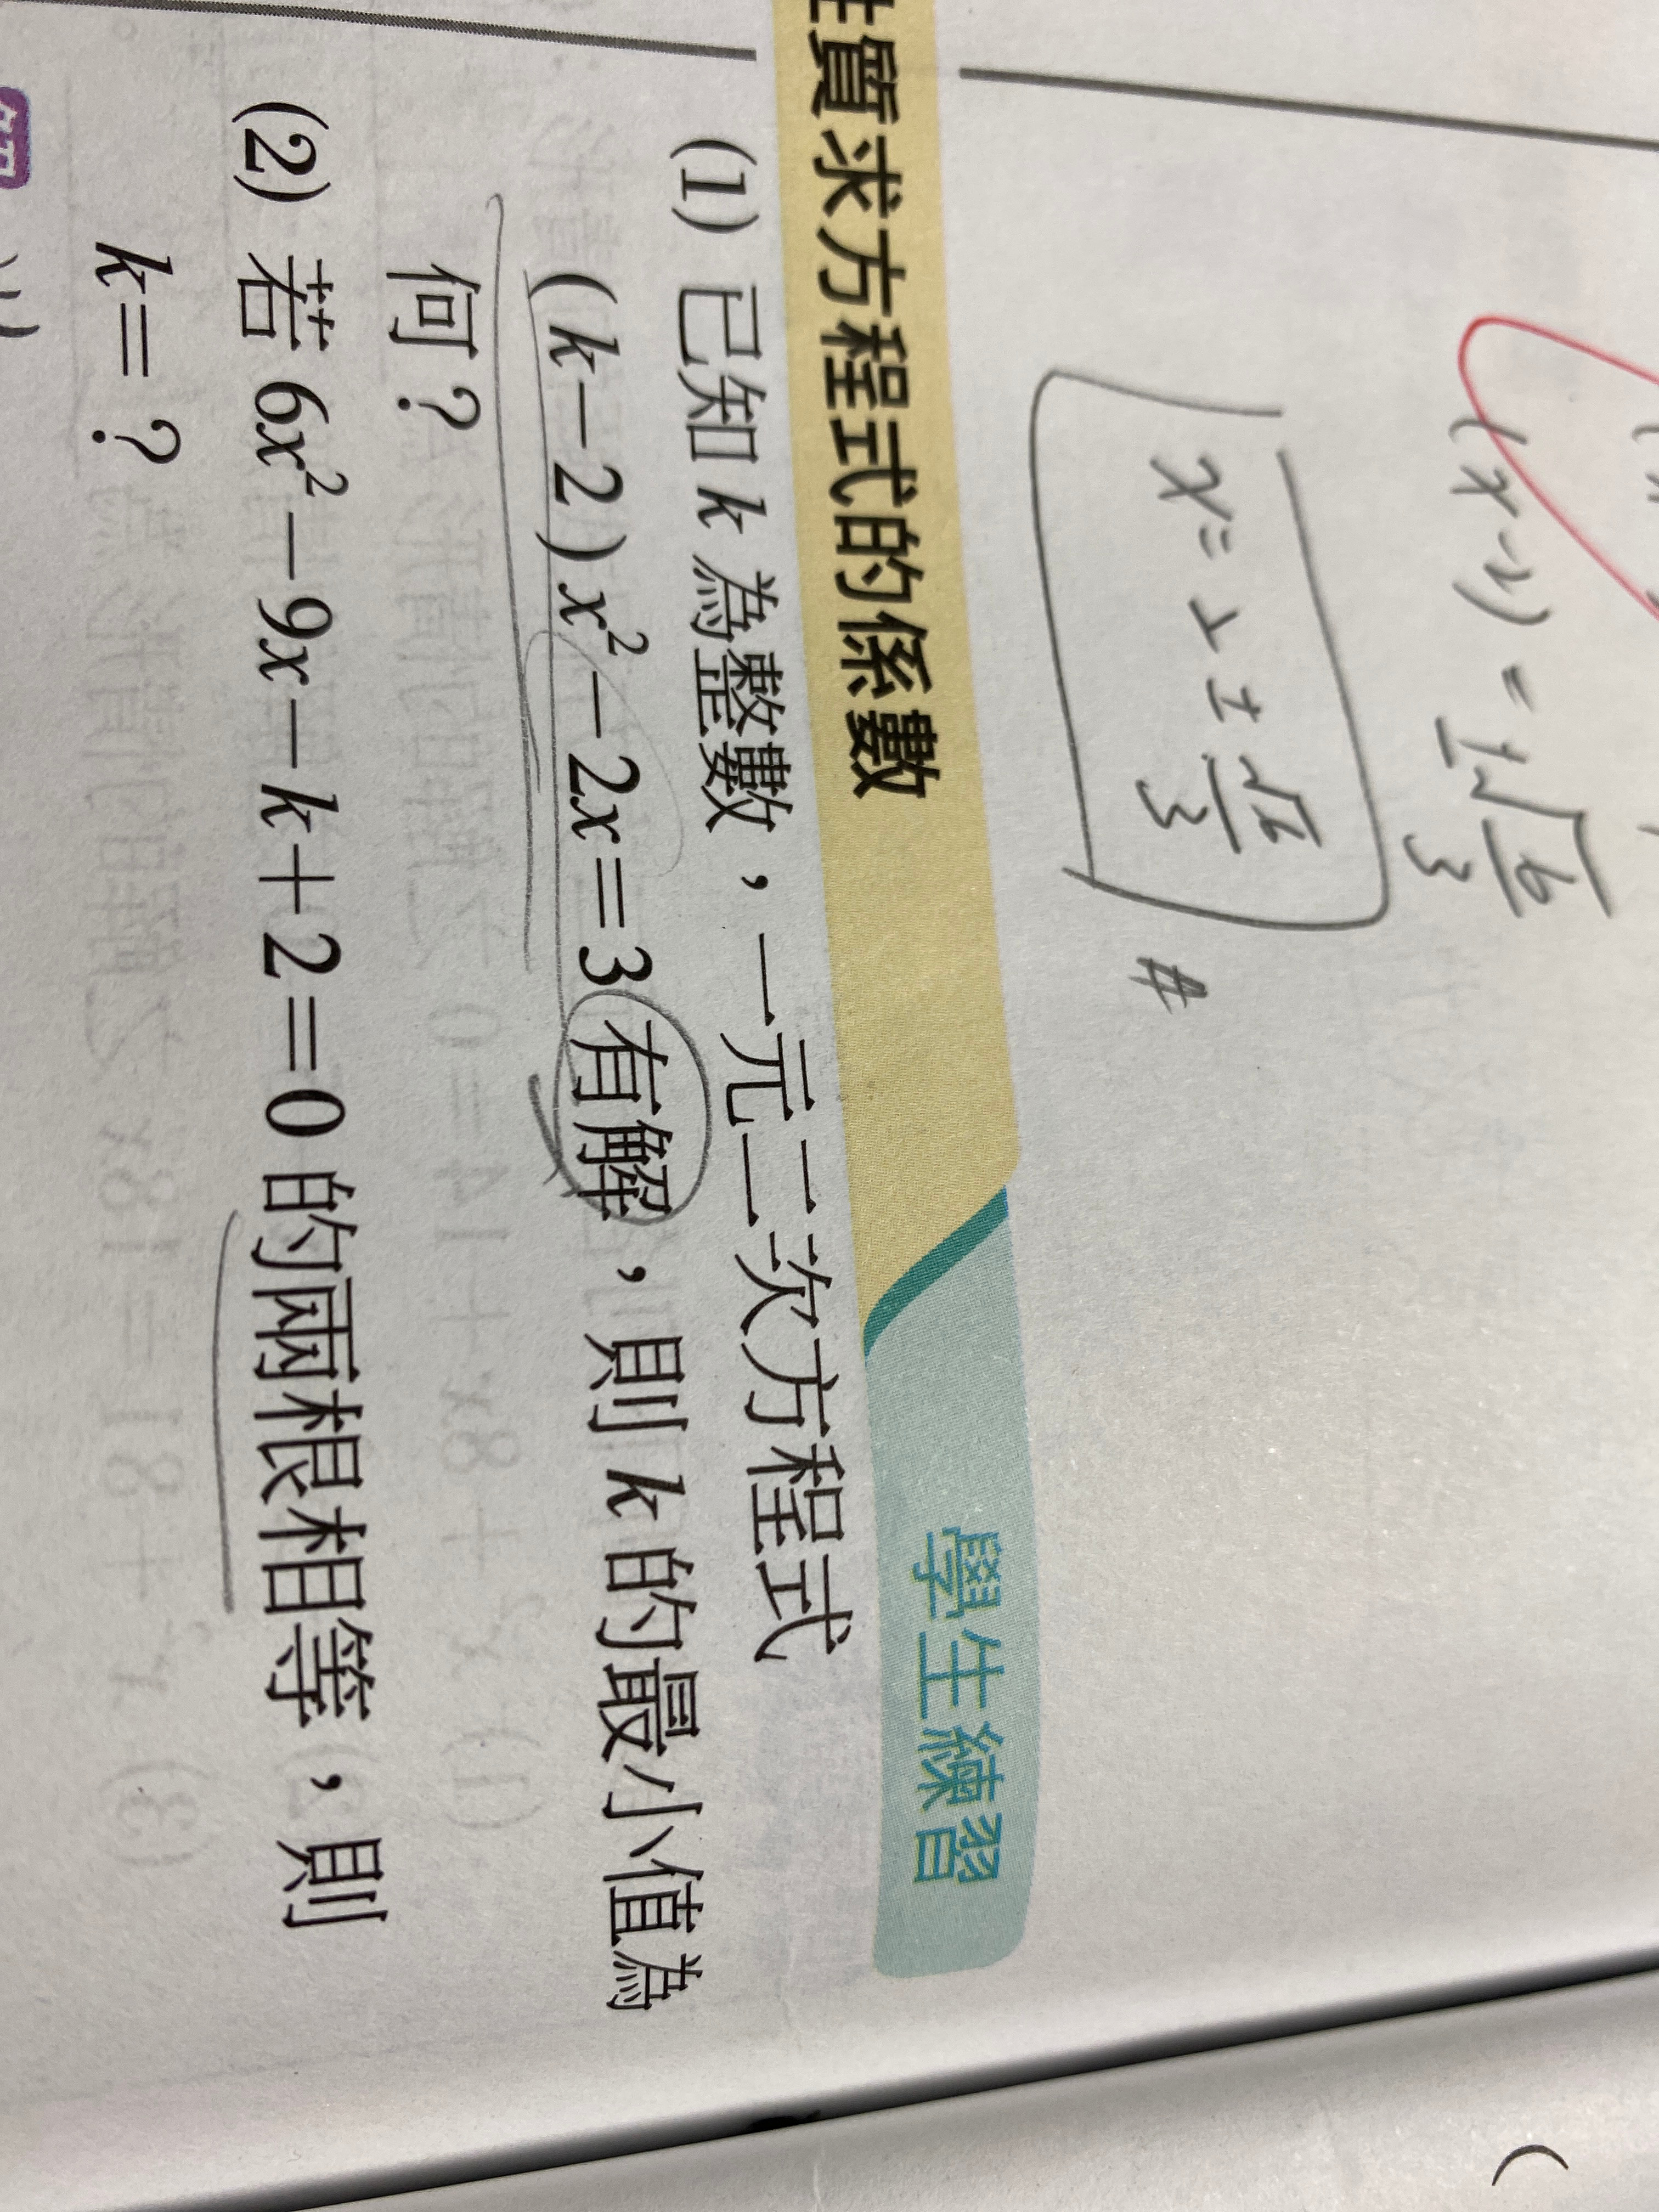 (x-2) = ±√6/3
x= 2 ± √6/3 #
質求方程式的係數 學生練習
(1) 已知 k 為整數，一元二次方程式
(k-2)x²-2x=3有解，則 k 的最小值為
何？
(2) 若 6x²-9x-k+2=0 的兩根相等，則
k=?